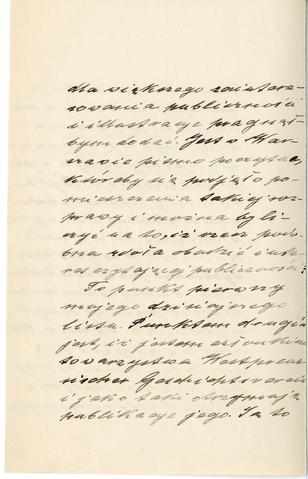 dla większego zaintere-
sowania publiczności
i illustracje pragnął-
bym dodać. Jest w War-
szawie pismo poczytne,
któreby się podjęło po-
mieszczenia takiej roz-
prawy i można by li-
czyć na to, iż rzecz podo-
bna zdoła obudzić inte-
res czytającej publiczności?
To punkt pierwszy
mojego dzisiejszego
listu. Punktem drugim
jest, iż jestem członkiem
towarzystwa Westpreus-
sischer Geschichtsverein
i jako taki otrzymuję
publikacje jego. Są to